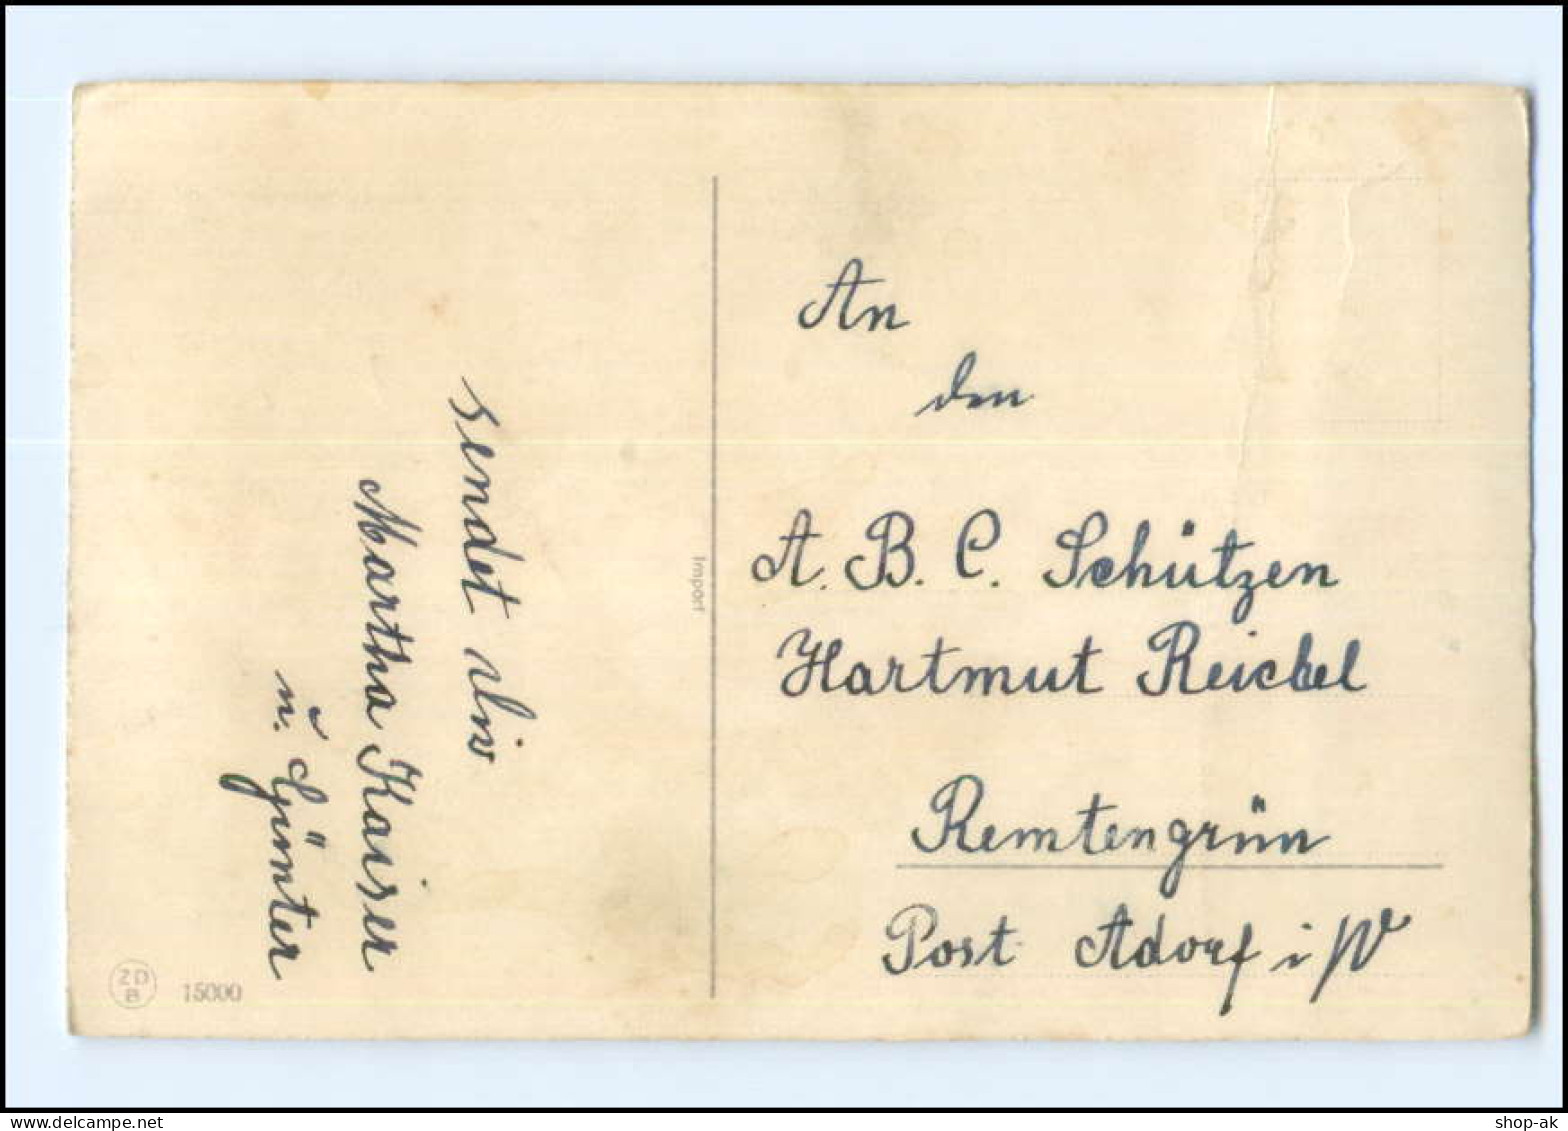 sendet dir
Martha Kaiser
u. Günter
Import
An
den
A. B. C. Schützen
Hartmut Reichel
Remtengrün
Post Adorf i/V
ZD
B
15000
www.delcampe.net
shop-ak